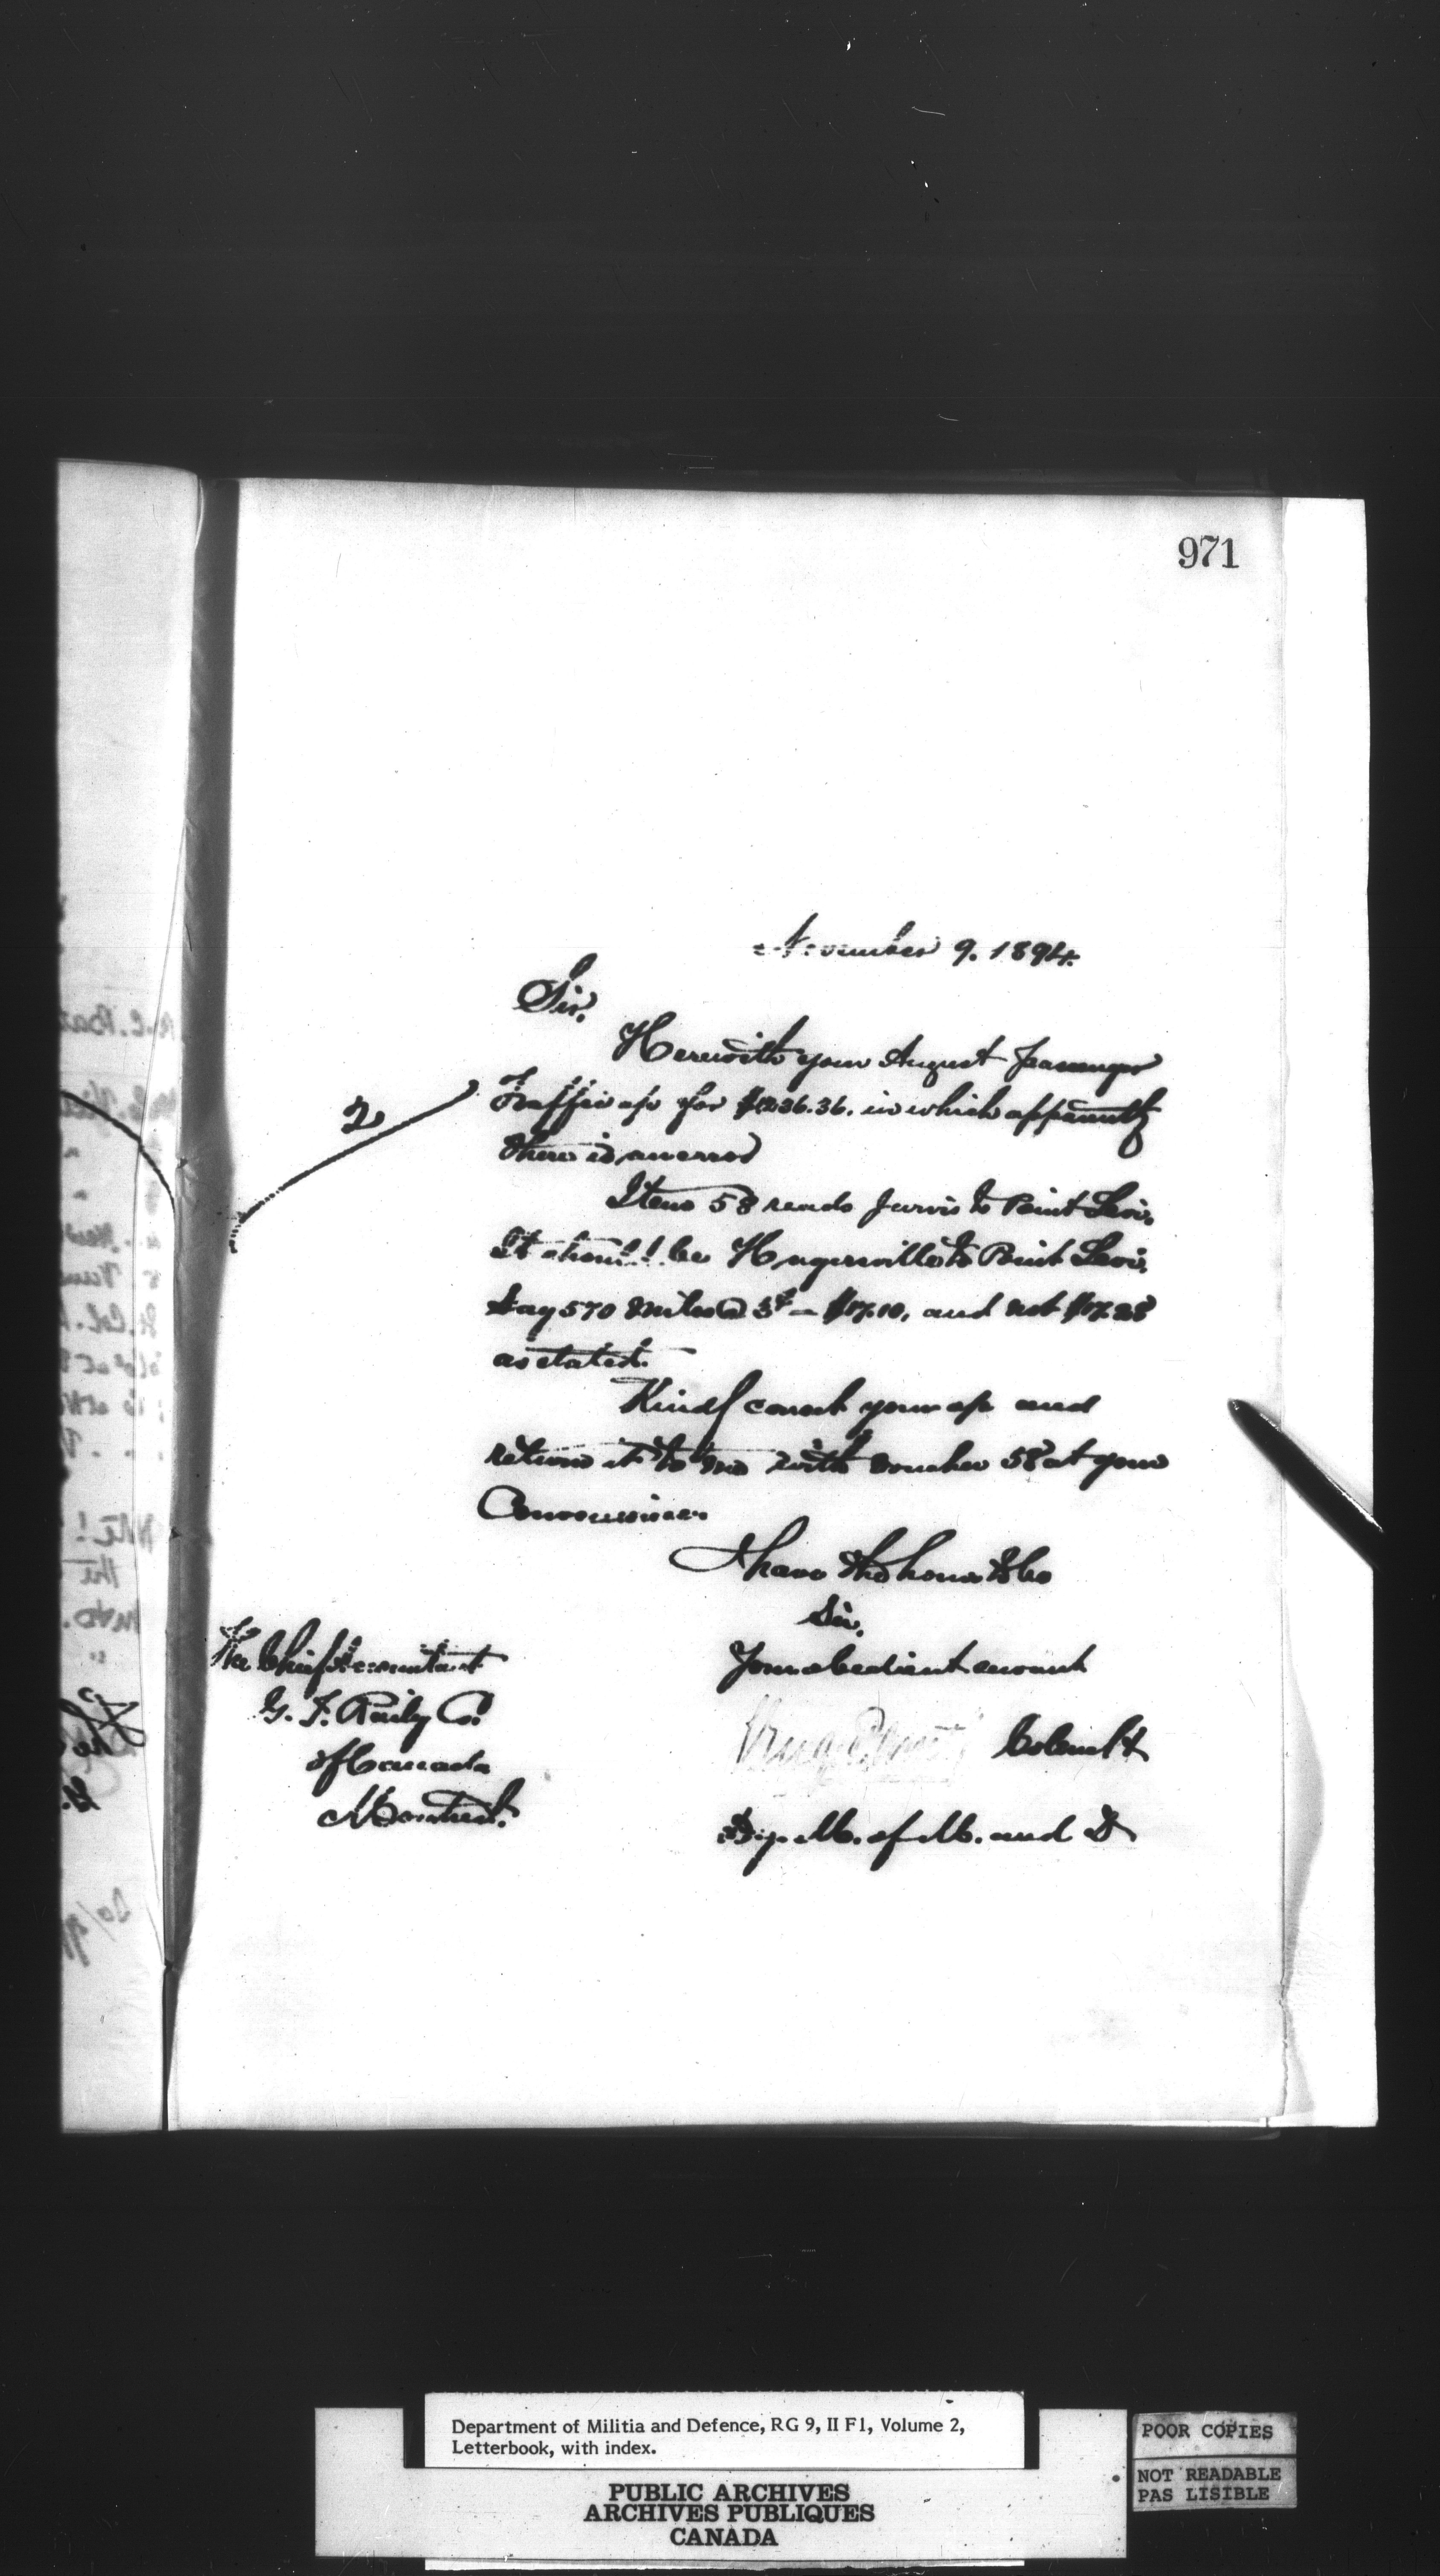 971
November 9. 1894.
Sir,
Herewith your August Passenger
Traffic a/c for $1236.36. in which apparently
there is an error
Item 58 reads Jarvis to Point Levis,
It should be Hagersville to Point Levis,
Say 570 miles @ 3¢ = $17.10, and not $17.28
as stated.
Kindly correct your a/c and
return it to me with voucher 58 at your
Convenience.
I have the honor to be
Sir,
Your obedient servant
Colonel
Dep. M. of M. and D
2
The Chief Accountant
G. T. Raily Co.
of Canada
Montreal.
Department of Militia and Defence, RG 9, II F1, Volume 2,
Letterbook, with index.
PUBLIC ARCHIVES
ARCHIVES PUBLIQUES
CANADA
POOR COPIES
NOT READABLE
PAS LISIBLE